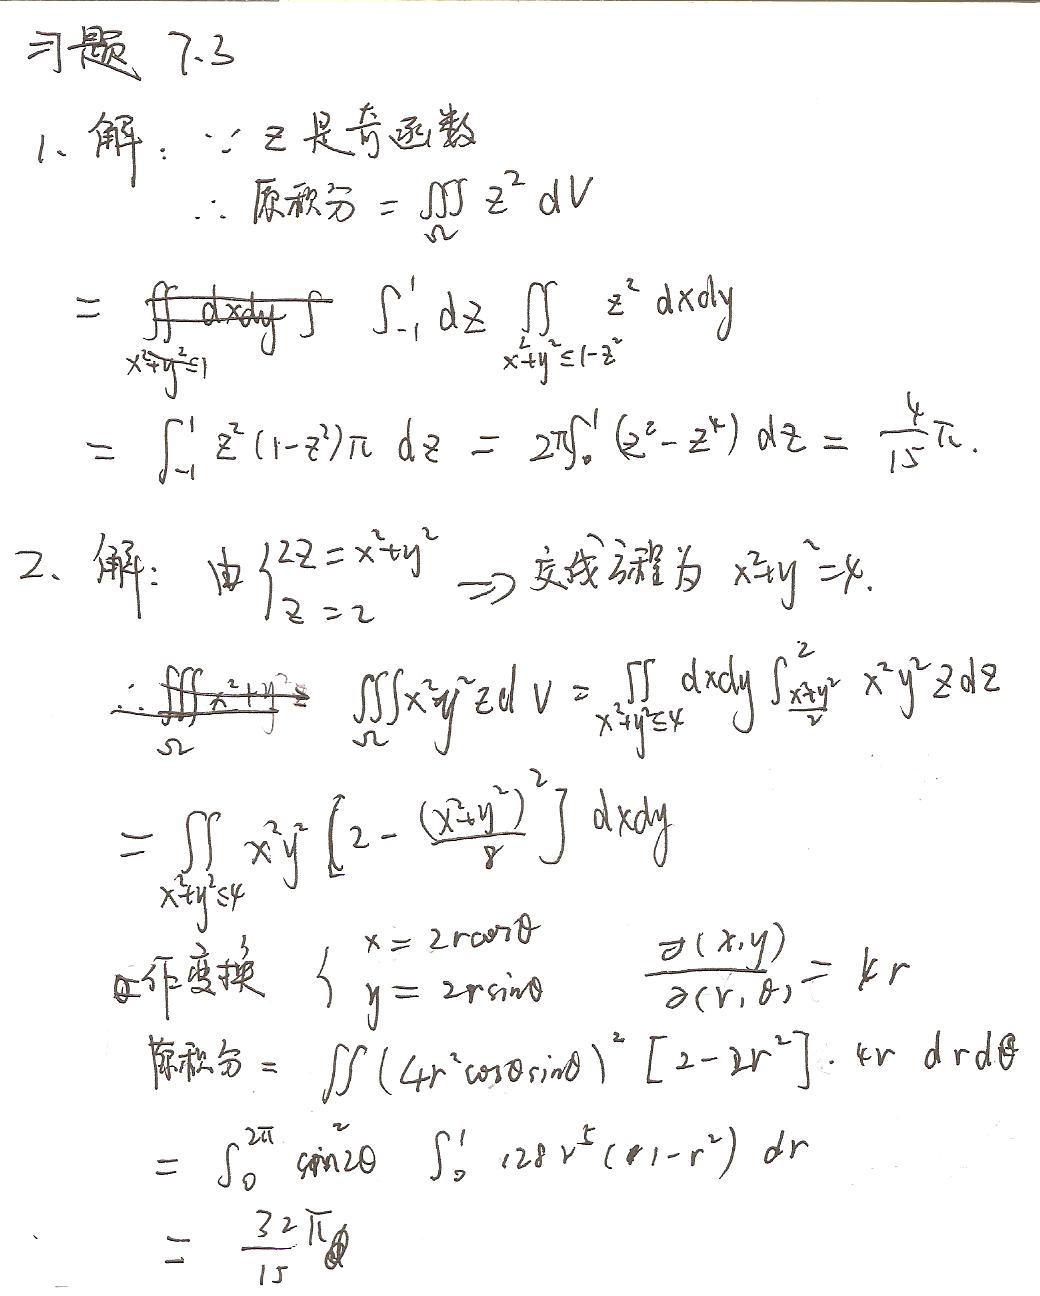 习题 7.3
1、解：∵ z 是奇函数
∴ 原积分 = ∭_Ω z² dV
= ∫₋₁¹ dz ∬_{x²+y²≤1-z²} z² dxdy
= ∫₋₁¹ z²(1-z²)π dz = 2π∫₀¹ (z²-z⁴) dz = 4/15 π.
2、解：由 { 2z = x²+y² , z = 2 ⇒ 交线方程为 x²+y²=4.
∴ ∭_Ω x²y²z dV = ∬_{x²+y²≤4} dxdy ∫_{(x²+y²)/2}^{2} x²y² z dz
= ∬_{x²+y²≤4} x²y² [2 - (x²+y²)²/8] dxdy
作变换 { x = 2rcosθ , y = 2rsinθ ∂(x,y)/∂(r,θ) = 4r
原积分 = ∬ (4r²cosθsinθ)² [2-2r²]·4r drdθ
= ∫₀^{2π} sin²2θ ∫₀¹ 128r⁵(1-r²) dr
= 32/15 π